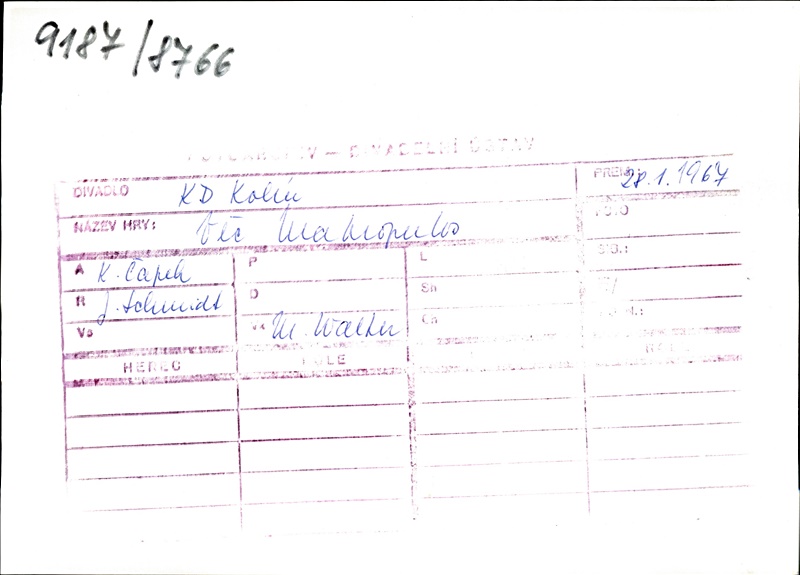 9187/8766
FOTOARCHIV — DIVADELNÍ ÚSTAV
DIVADLO KD Kolín PREM.: 28.1.1967
NÁZEV HRY: Věc Makropulos FOTO
A K. Čapek P L SIG.:
R J. Schmidt D Sn
Vs M. Walter Ch
HEREC ROLE